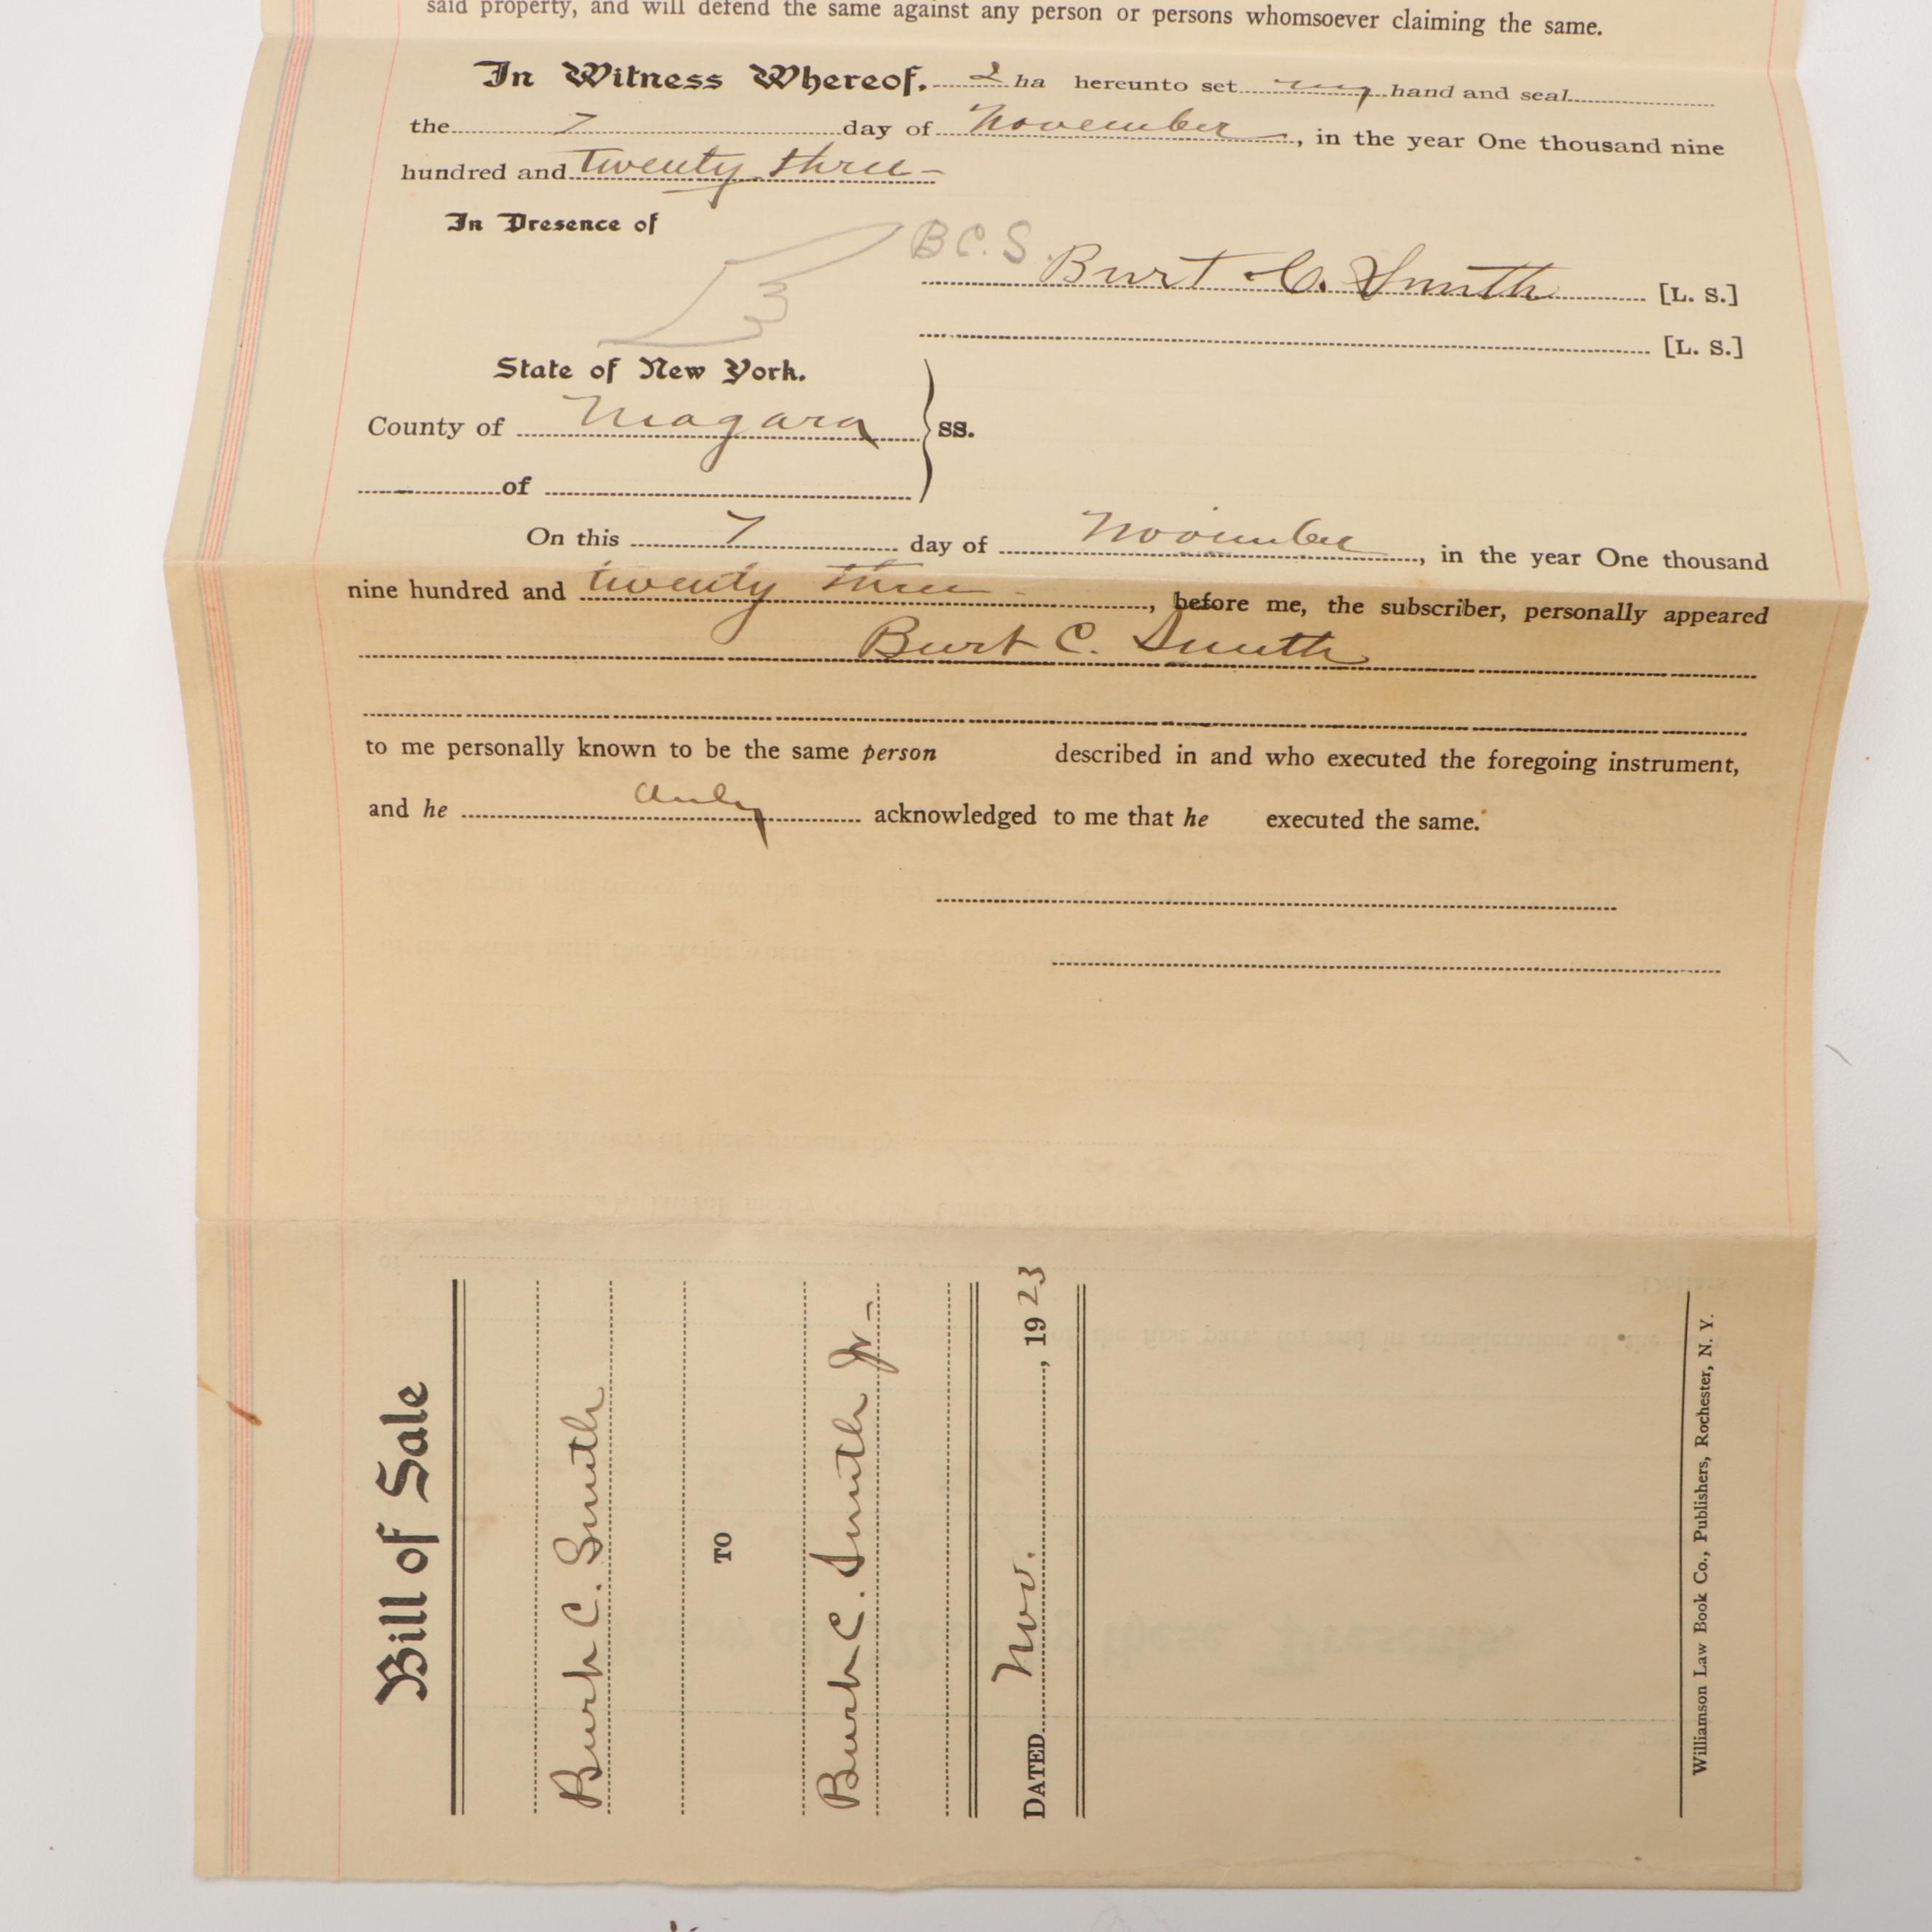 said property, and will defend the same against any person or persons whomsoever claiming the same.
In Witness Whereof, I ha hereunto set my hand and seal
the 7 day of November, in the year One thousand nine
hundred and Twenty three
In Presence of
B C. S.
Burt C. Smith [L. S.]
[L. S.]
State of New York.
County of Niagara ss.
of
On this 7 day of November, in the year One thousand
nine hundred and twenty three, before me, the subscriber, personally appeared
Burt C. Smith
to me personally known to be the same person described in and who executed the foregoing instrument,
and he duly acknowledged to me that he executed the same.
Bill of Sale
Burt C. Smith
TO
Burt C. Smith Jr.
DATED Nov. , 1923
Williamson Law Book Co., Publishers, Rochester, N. Y.